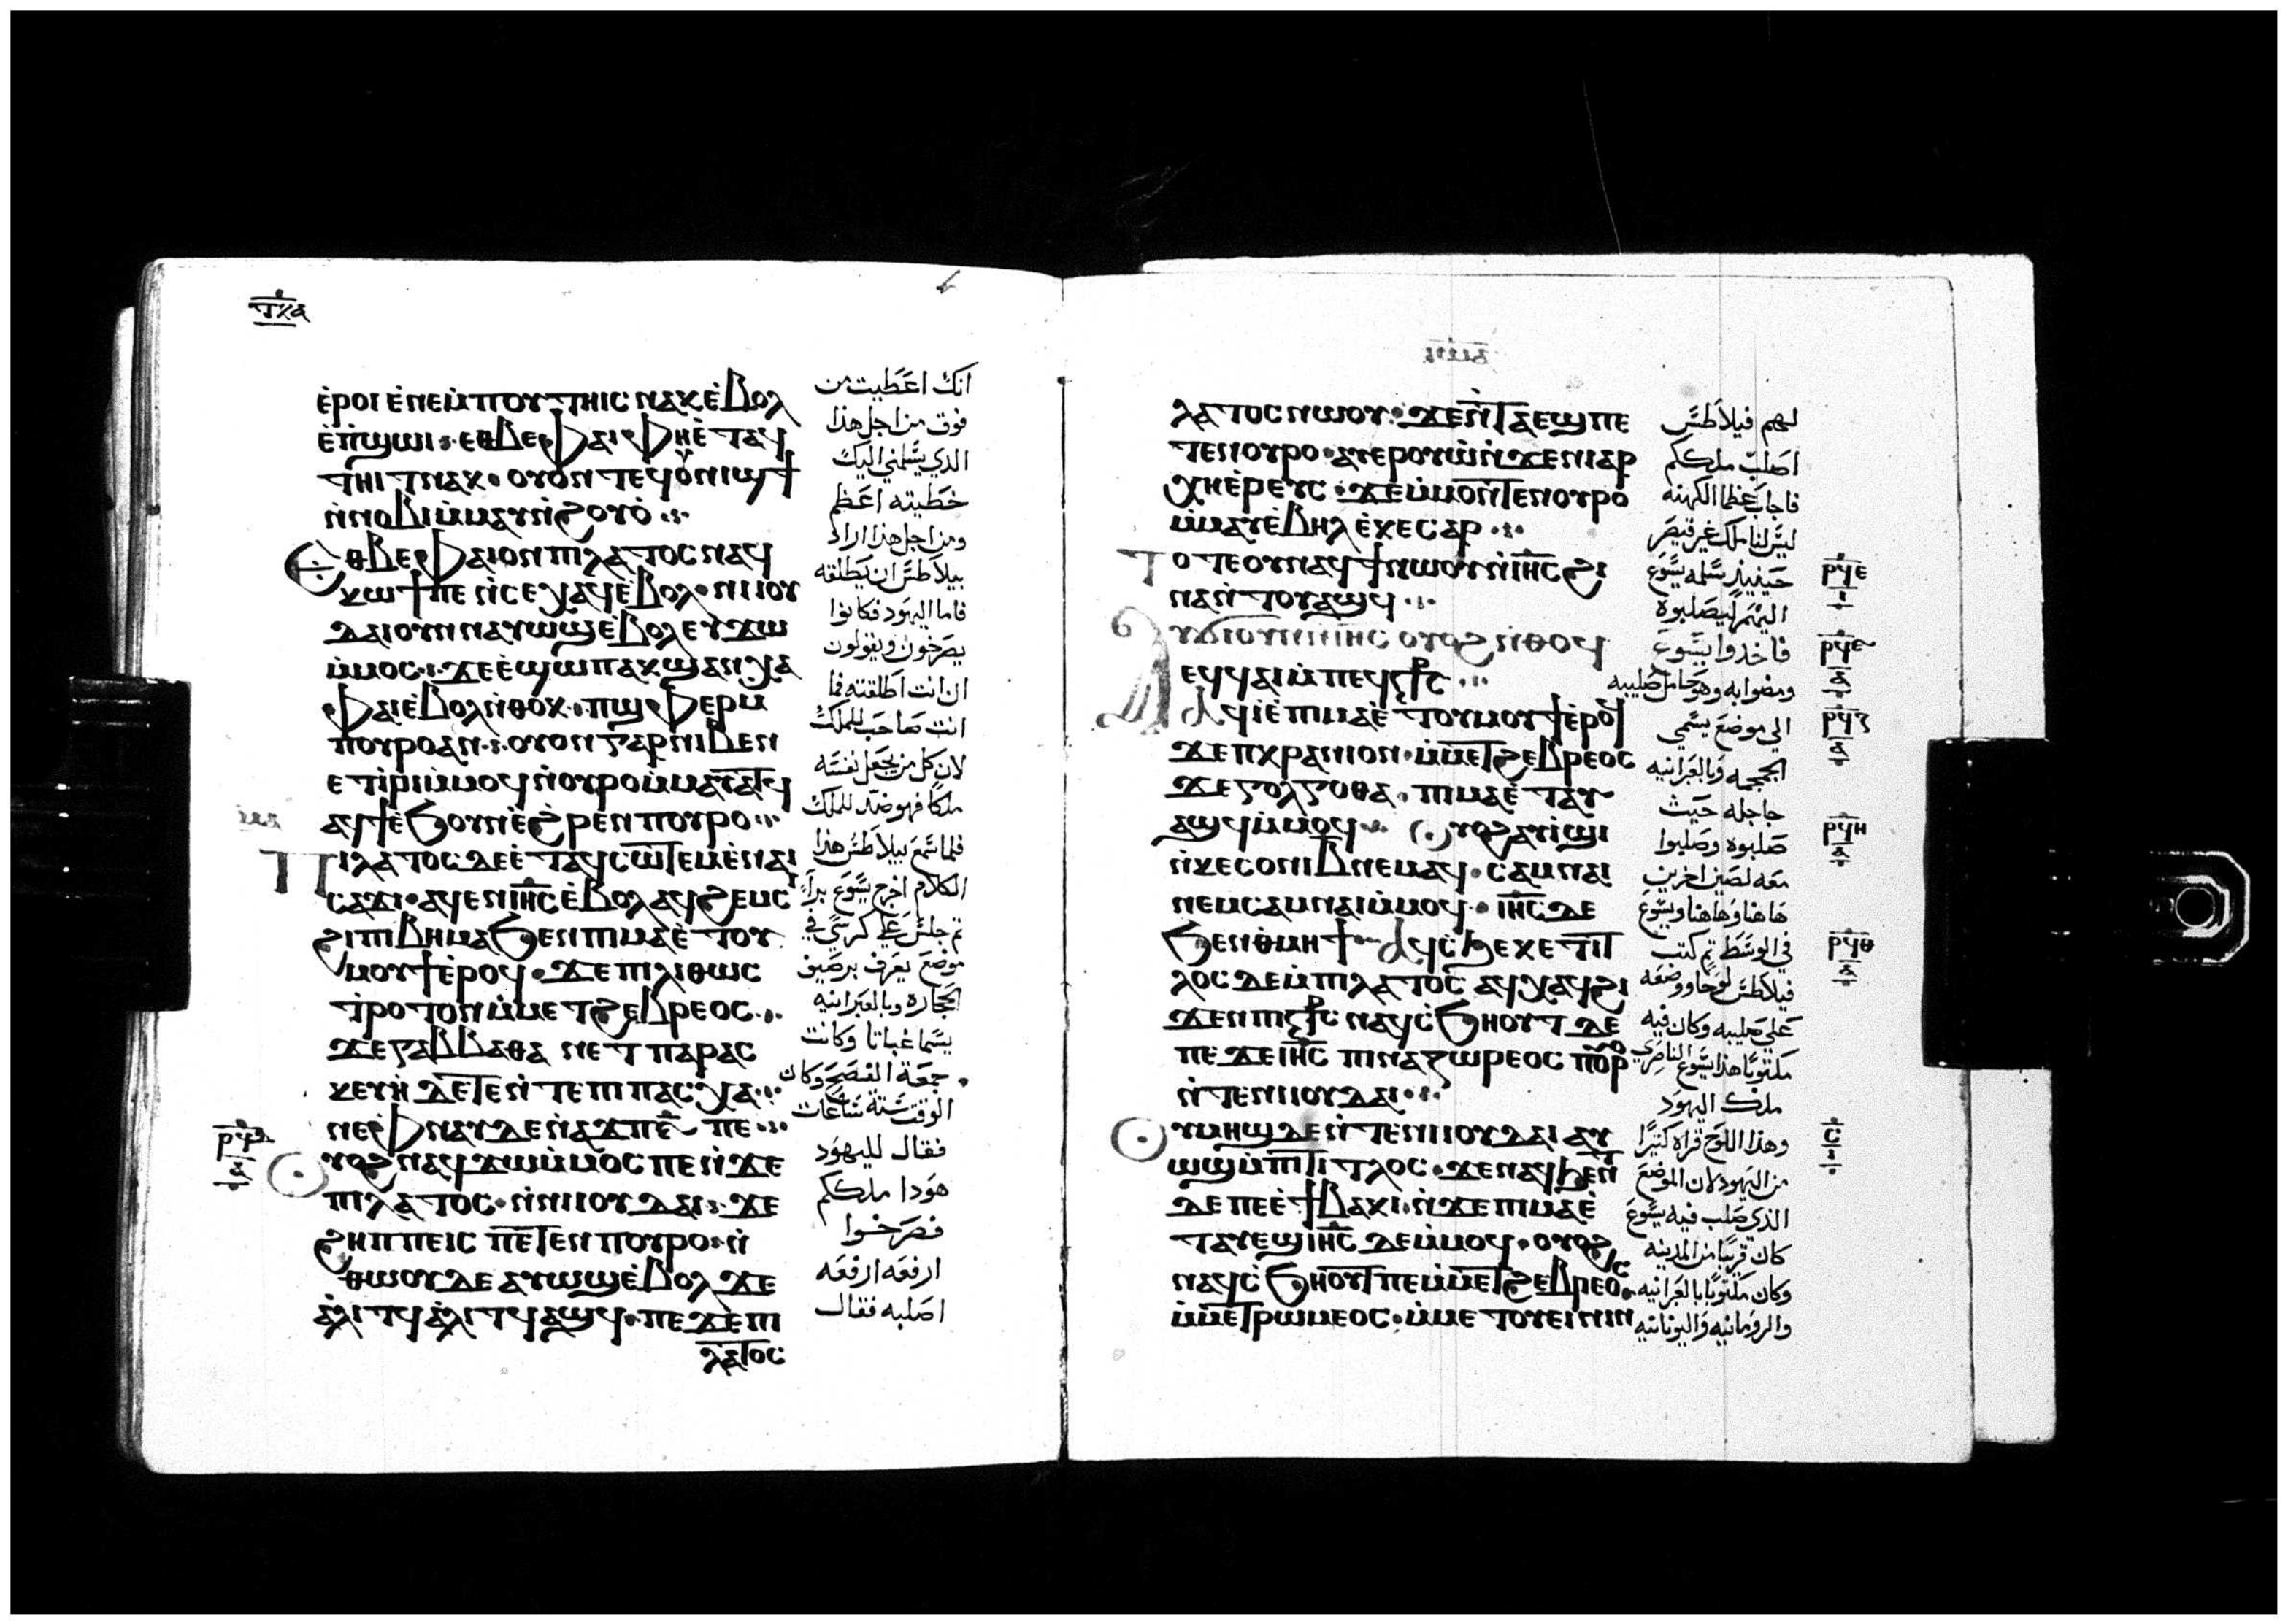 ⲧⲝⲁ
ⲉ̀ⲣⲟⲓ ⲉ̀ⲛⲉⲙ̀ⲡⲟⲩⲧⲏⲓⲥ ⲛⲁⲕ ⲉ̀ⲃⲟⲗ
ⲉ̀ⲡ̀ϣⲱⲓ ⲉⲑⲃⲉ ⲫⲁⲓ ⲫⲏⲉ̀ⲧⲁϥ
ⲧⲏⲓⲧ ⲛⲁⲕ ⲟⲩⲟⲛ ⲧⲉϥ ⲟⲩⲛⲓϣϯ
ⲛ̀ⲛⲟⲃⲓ ⲙ̀ⲙⲁⲩ ⲛ̀ϩⲟⲩⲟ̀
ⲉⲑⲃⲉ ⲫⲁⲓ ⲟⲛ ⲡⲓⲗⲁⲧⲟⲥ ⲛⲁϥ
ⲕⲱϯ ⲡⲉ ⲛ̀ⲥⲉⲭⲁϥ ⲉ̀ⲃⲟⲗ ⲛⲓⲓⲟⲩ
ⲇⲁⲓ ⲟⲩⲛ ⲛⲁⲩⲱϣ ⲉ̀ⲃⲟⲗ ⲉⲩϫⲱ
ⲙ̀ⲙⲟⲥ ϫⲉ ⲉ̀ϣⲱⲡ ⲁⲕϣⲁⲛⲭⲁ
ⲫⲁⲓ ⲉ̀ⲃⲟⲗ ⲛ̀ⲑⲟⲕ ⲡ̀ϣⲫⲏⲣ ⲙ̀
ⲡⲟⲩⲣⲟ ⲁⲛ ⲟⲩⲟⲛ ⲅⲁⲣ ⲛⲓⲃⲉⲛ
ⲉⲧⲓ̀ⲣⲓ ⲙ̀ⲙⲟϥ ⲛ̀ⲟⲩⲣⲟ ⲙ̀ⲙⲁⲩⲁⲧϥ
ⲁϥϯ ⲉ̀ϧⲟⲩⲛ ⲉ̀ϩⲣⲉⲛ ⲡⲟⲩⲣⲟ
ⲡⲓⲗⲁⲧⲟⲥ ⲇⲉ ⲉ̀ⲧⲁϥⲥⲱⲧⲉⲙ ⲉ̀ⲛⲁⲓ
ⲥⲁϫⲓ ⲁϥⲉⲛ ⲓⲏⲥ ⲉ̀ⲃⲟⲗ ⲁϥϩⲉⲙⲥⲓ
ϩⲓ ⲡⲓⲃⲏⲙⲁ ϧⲉⲛ ⲡⲓⲙⲁ ⲉ̀ⲧⲟⲩ
ⲙⲟⲩϯ ⲉ̀ⲣⲟϥ ϫⲉ ⲡⲓⲗⲓⲑⲱⲥ
ⲧⲣⲟⲧⲟⲛ ⲙ̀ⲙⲉⲧϩⲉⲃⲣⲉⲟⲥ
ϫⲉ ⲅⲁⲃⲃⲁⲑⲁ ⲛⲉⲧ ⲡⲁⲣⲁⲥ
ⲕⲉⲩⲏ̀ ⲇⲉ ⲧⲉ ⲛ̀ⲧⲉ ⲡⲓⲡⲁⲥⲭⲁ
ⲛⲉ ⲫⲛⲁⲩ ⲇⲉ ⲛ̀ⲁϫⲡ ⲋ̅ ⲡⲉ
ⲟⲩⲟϩ ⲛⲁϥϫⲱ ⲙ̀ⲙⲟⲥ ⲡⲉ ⲛ̀ϫⲉ
ⲡⲓⲗⲁⲧⲟⲥ ⲛ̀ⲛⲓⲓⲟⲩⲇⲁⲓ ϫⲉ
ϩⲏⲡⲡⲉ ⲓⲥ ⲡⲉⲧⲉⲛ ⲡⲟⲩⲣⲟ ⲛ̀
ⲑⲱⲟⲩ ⲇⲉ ⲁⲩⲱϣ ⲉ̀ⲃⲟⲗ ϫⲉ
ⲁ̀ⲗⲓⲧϥ ⲁ̀ⲗⲓⲧϥ ⲁϣϥ ⲡⲉϫⲉ ⲡⲓ
ⲗⲁⲧⲟⲥ
انك اعطيت من
فوق من اجل هذا
الذي يسلمني اليك
خطيته اعظم
ومن اجل هذا اراد
بيلاطس ان يطلقه
فاما اليهود فكانوا
يصرخون ويقولون
ان انت اطلقته فما
انت صاحب للملك
لان كل من يجعل نفسه
ملكا فهو ضد للملك
فلما سمع بيلاطس هذا
الكلام اخرج يسوع برا
ثم جلس علي كرسي في
موضع يعرف برصيف
الحجاره وبالعبرانيه
يسما غباتا وكانت
جمعة الفصح وكان
الوقت ستة ساعات
فقال لليهود
هودا ملككم
فصرخوا
ارفعه ارفعه
اصلبه فقال
ⲗⲁⲧⲟⲥ ⲛⲱⲟⲩ ϫⲉ ⲛ̀ⲧⲁⲉϣ ⲡⲉ
ⲧⲉⲛⲟⲩⲣⲟ ⲁⲩⲉⲣⲟⲩⲱ̀ ⲛ̀ϫⲉ ⲛⲓⲁⲣ
ⲭⲏⲉ̀ⲣⲉⲩⲥ ϫⲉ ⲙ̀ⲙⲟⲛⲧⲉⲛ ⲟⲩⲣⲟ
ⲙ̀ⲙⲁⲩ ⲉ̀ⲃⲏⲗ ⲉ̀ⲕⲉⲥⲁⲣ
ⲧⲟⲧⲉ ⲟⲩⲛ ⲁϥϯ ⲛⲱⲟⲩ ⲛ̀ⲓⲏⲥ ϩⲓ
ⲛⲁ ⲛ̀ⲧⲟⲩⲁϣϥ
ⲁⲩϭⲓ ⲟⲩⲛ ⲛ̀ⲓⲏⲥ ⲟⲩⲟϩ ⲛ̀ⲑⲟϥ
ⲉϥϥⲁⲓ ⲙ̀ⲡⲉϥⲥ̅ⲧ̅ⲥ̅
ⲁϥⲓ̀ ⲉ̀ⲡⲓⲙⲁ ⲉ̀ⲧⲟⲩⲙⲟⲩϯ ⲉ̀ⲣⲟϥ
ϫⲉ ⲡⲕⲣⲁⲛⲓⲟⲛ ⲙ̀ⲙⲉⲧϩⲉⲃⲣⲉⲟⲥ
ϫⲉ ⲅⲟⲗⲅⲟⲑⲁ ⲡⲓⲙⲁ ⲉ̀ⲧⲁⲩ
ⲁϣϥ ⲙ̀ⲙⲟϥ ⲟⲩⲟϩ ⲁⲩⲓ̀ϣⲓ
ⲛ̀ⲕⲉⲥⲟⲛⲓ ⲃ̅ ⲛⲉⲙⲁϥ ⲥⲁⲙⲛⲁⲓ
ⲛⲉⲙ ⲥⲁⲙⲛⲁⲓ ⲙ̀ⲙⲟϥ ⲓⲏⲥ ⲇⲉ
ϧⲉⲛ ⲑⲙⲏϯ ⲁϥⲥϧⲉ ⲕⲉⲧⲓⲧ
ⲗⲟⲥ ⲇⲉ ⲙ̀ⲡⲓⲗⲁⲧⲟⲥ ⲁϥⲭⲁϥ ϩⲓ
ϫⲉⲛ ⲡⲓⲥ̅ⲧ̅ⲥ̅ ⲛⲁϥⲥ̀ϧⲏⲟⲩⲧ ⲇⲉ
ⲡⲉ ϫⲉ ⲓⲏⲥ ⲡⲓⲛⲁⲍⲱⲣⲉⲟⲥ ⲡⲟⲩⲣⲟ
ⲛ̀ⲧⲉ ⲛⲓⲓⲟⲩⲇⲁⲓ
ⲟⲩⲙⲏϣ ⲇⲉ ⲛ̀ⲧⲉ ⲛⲓⲓⲟⲩⲇⲁⲓ ⲁⲩ
ⲱϣ ⲙ̀ⲡⲓⲧⲓⲧⲗⲟⲥ ϫⲉ ⲛⲁϥϧⲉⲛⲧ
ⲇⲉ ⲡⲉ ⲉ̀ϯⲃⲁⲕⲓ ⲛ̀ϫⲉ ⲡⲓⲙⲁ ⲉ̀
ⲧⲁⲩⲉϣ ⲓⲏⲥ ⲇⲉ ⲙ̀ⲙⲟϥ ⲟⲩⲟϩ
ⲛⲁϥⲥ̀ϧⲏⲟⲩⲧ ⲡⲉ ⲙ̀ⲙⲉⲧϩⲉⲃⲣⲉⲟⲥ
ⲙ̀ⲙⲉⲧⲣⲱⲙⲉⲟⲥ ⲙ̀ⲙⲉⲧⲟⲩⲉⲓⲛⲓⲛ
لهم فيلاطس
اصلب ملككم
فاجاب عظما الكهنه
ليس لنا ملك غير قيصر
حينيذ سلمه يسوع
اليهم ليصلبوه
فاخدوا يسوع
ومضوا به وهو حامل صليبه
الى موضع يسمي
الجمجمه وبالعبرانيه
جاجله حيث
صلبوه وصلبوا
معه لصين اخرين
هاهنا وهاهنا ويسوع
في الوسط ثم كتب
فيلاطس لوحا ووضعه
على صليبه وكان فيه
مكتوبا هذا يسوع الناصري
ملك اليهود
وهذا اللوح قراه كثيرا
من اليهود لان الموضع
الذي صلب فيه يسوع
كان قريبا من المدينه
وكان مكتوبا بالعبرانيه
والرومانيه واليونانيه